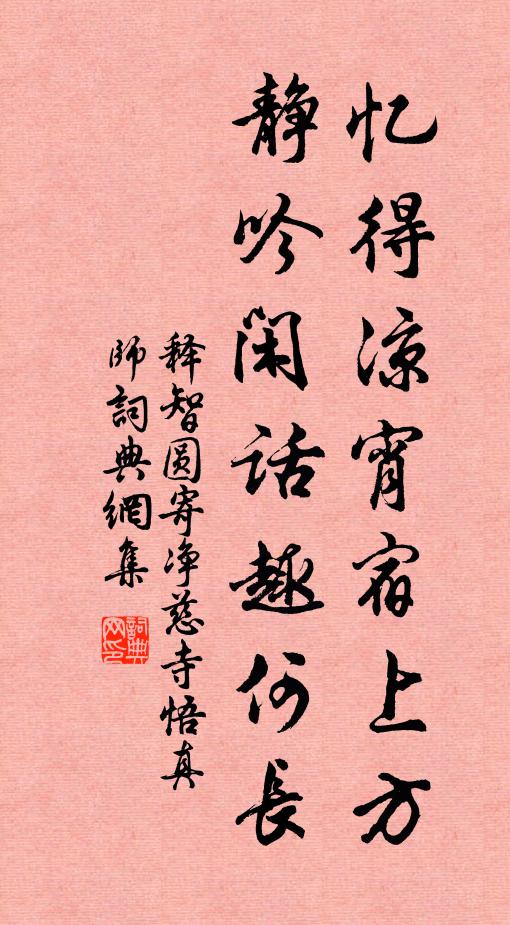 忆得凉宵宿上方
静吟闲话趣何长
释智圆寄净慈寺悟真
师詞典網集
詞典网印